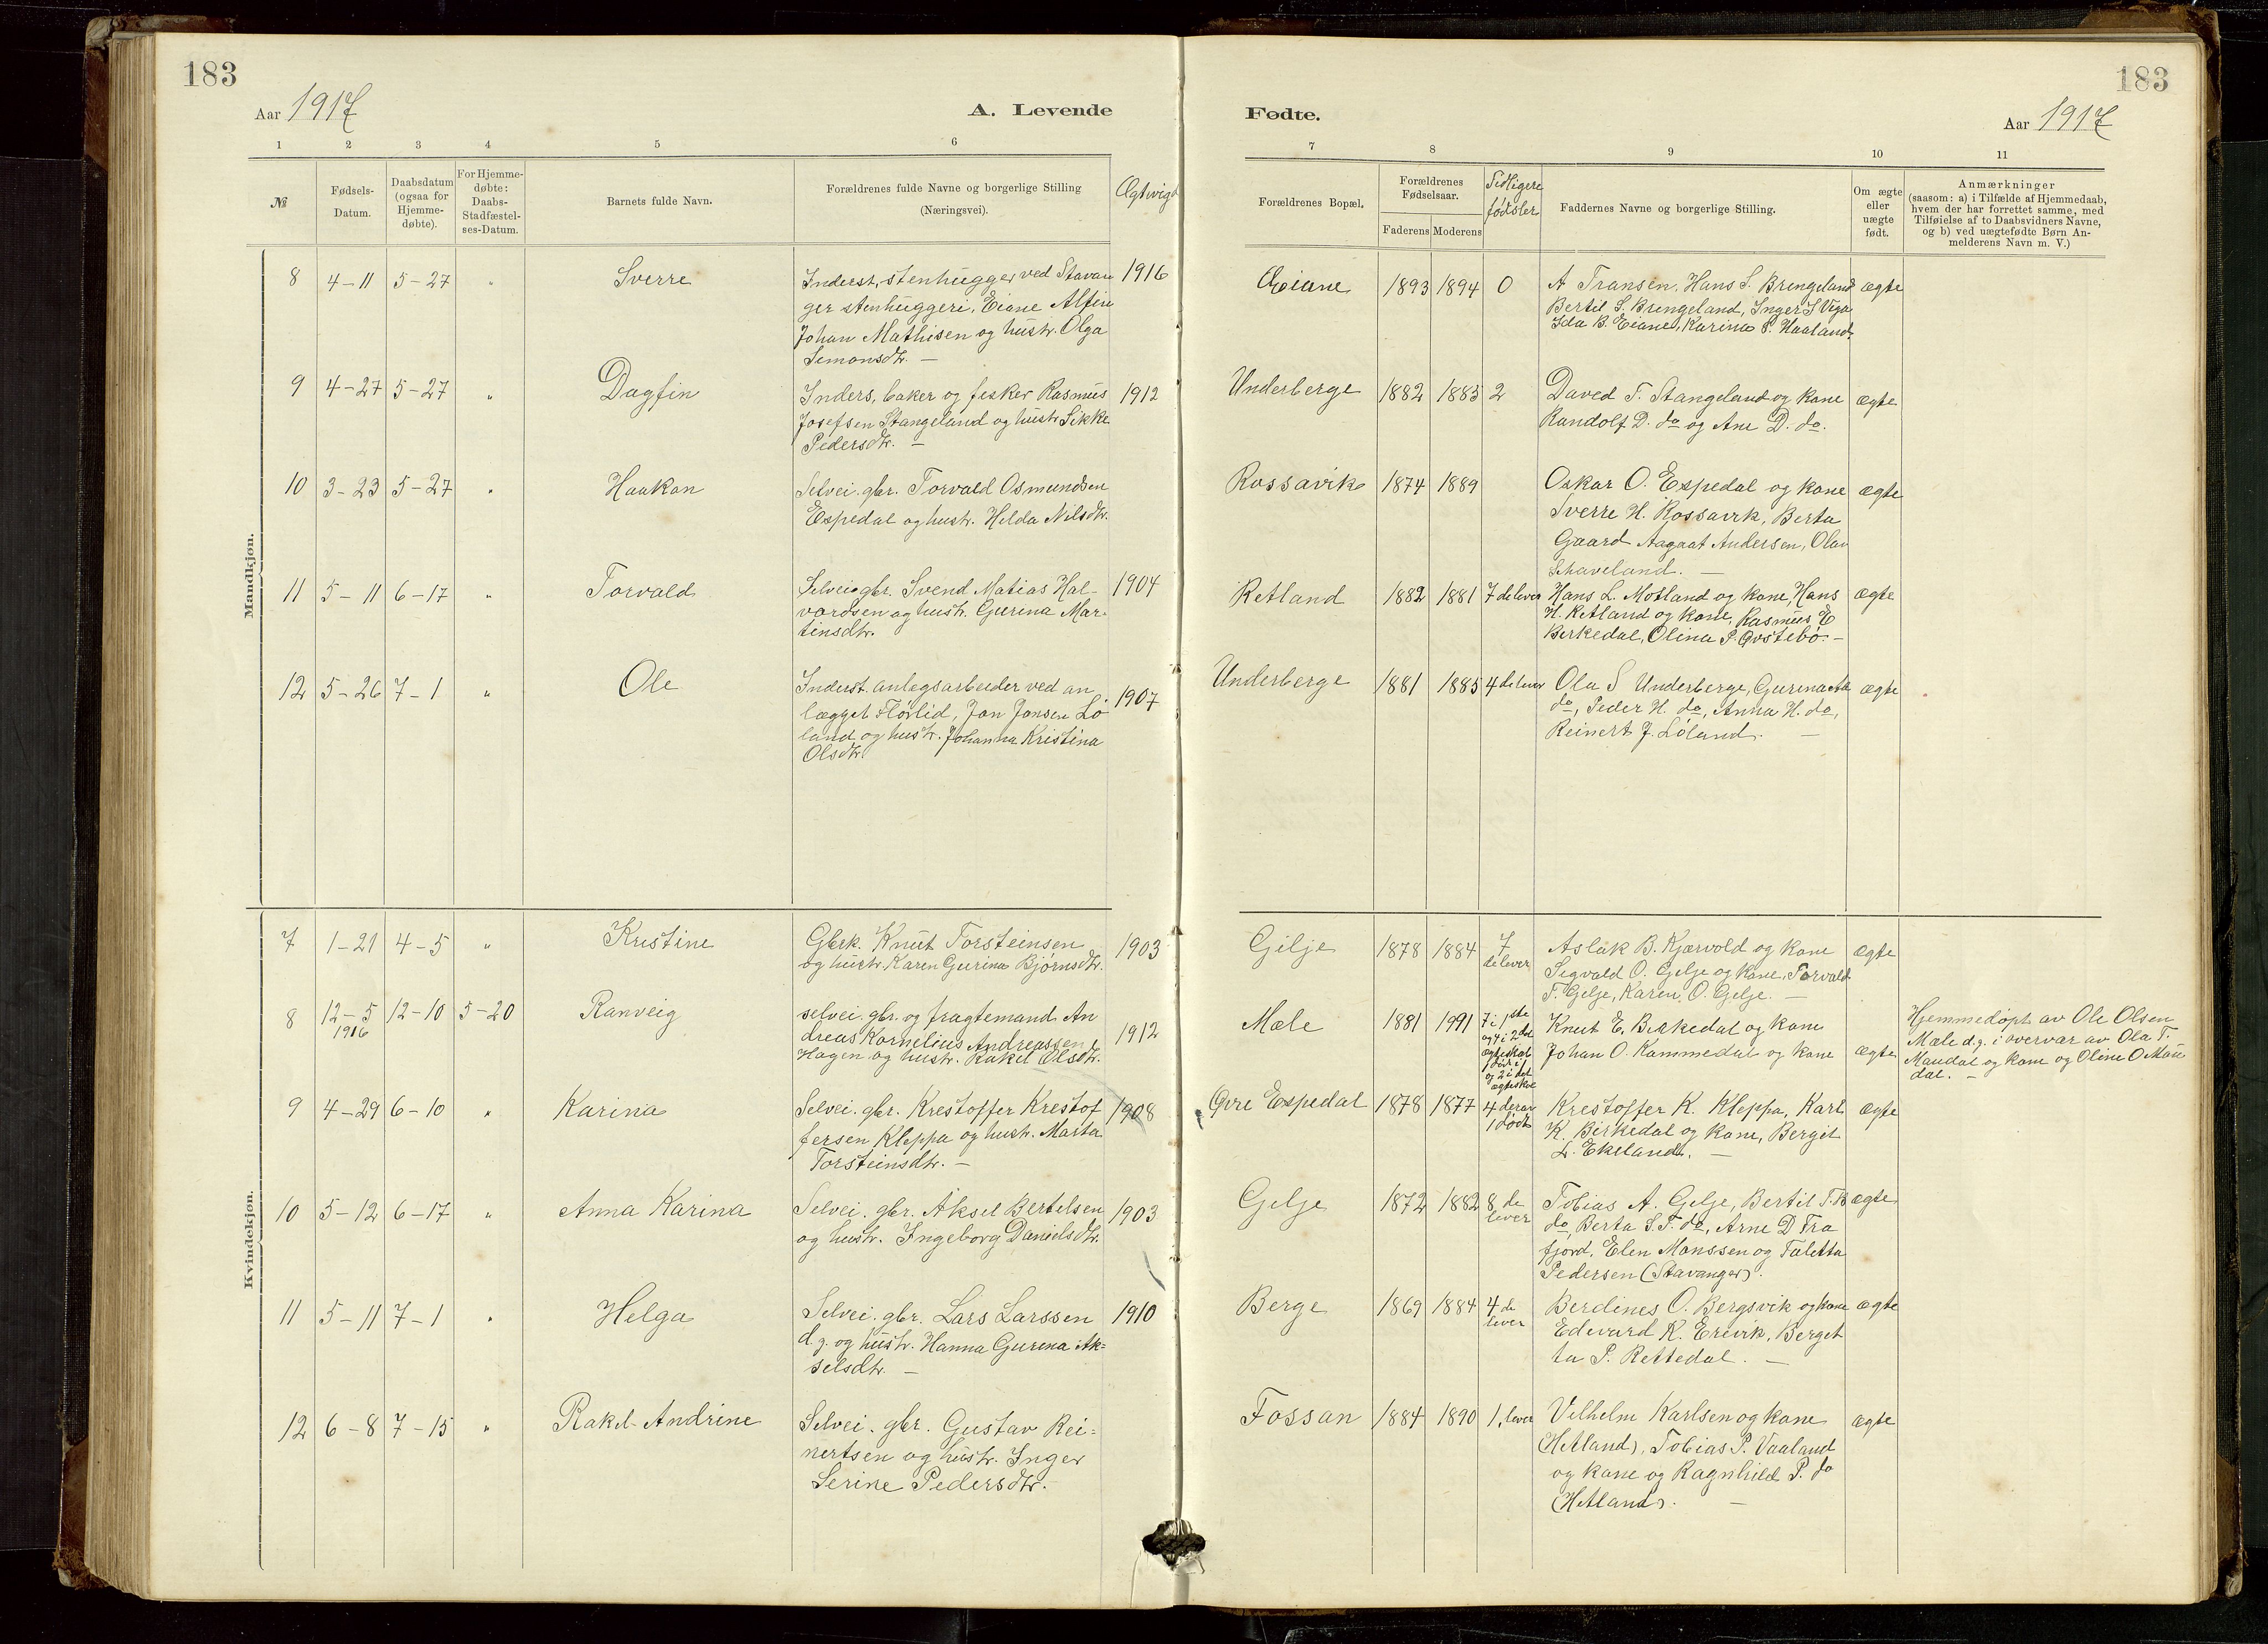 183
Aar 1917
A. Levende
1 2 3 4 5 6
№
Fødsels-
Datum.
Daabsdatum
(ogsaa for
Hjemme-
døbte).
For Hjemme-
døbte:
Daabs-
Stadfæstel-
ses-Datum.
Barnets fulde Navn.
Forældrenes fulde Navne og borgerlige Stilling
(Næringsvei).
Ægtvigd
Mandkjøn.
8 4-11 5-27 " Sverre
Inderst, stenhugger ved Stavan
ger stenhuggeri, Eiane Alfin
Johan Mathisen og hustr. Olga
Simonsdtr. —
1916
9 4-27 5-27 " Dagfin
Inders, baker og fisker Rasmus
Josefsen Stangeland og hustr Sikke
Pedersdtr. —
1912
10 3-23 5-27 " Haakon
Selvei. gbr. Torvald Osmundsen
Espedal og hustr. Helda Nilsdtr.
11 5-11 6-17 " Torvald
Selveiegbr. Svend Matias Hal-
vardsen og hustr. Gurina Mar-
tinsdtr.
1904
12 5-26 7-1 " Ole
Inderst. anlegsarbeider ved an
lægget Flørlid, Jon Jonsen Lø
land og hustr. Johanna Kristina
Olsdtr.
1907
Kvindekjøn.
7 1-21 4-5 " Kristine
Gbrk. Knut Torsteinsen
og hustr. Karen Gurina Bjørnsdtr.
1903
8 12-5 1916 12-10 5-20 Ranveig
selvei. gbr. og fragtemand An
dreas Kornelius Andreassen
Hagen og hustr. Rakel Olsdtr.
1912
9 4-29 6-10 " Karina
Selvei. gbr. Krestoffer Krestof
fersen Kleppa og hustr. Marta
Torsteinsdtr. —
1908
10 5-12 6-17 " Anna Karina
Selvei. gbr. Aksel Bertelsen
og hustr. Ingeborg Danielsdtr.
1903
11 5-11 7-1 " Helga
Selvei. gbr. Lars Larssen
d.y. og hustr. Hanna Gurina Ak=
selsdtr. —
1910
12 6-8 7-15 " Rakel-Andrine
Selvei. gbr. Gustav Rei=
nertsen og hustr. Inger
Serine Pedersdtr.
183
Fødte.
Aar 1917
7 8 9 10 11
Forældrenes Bopæl.
Forældrenes
Fødselsaar.
Faderens Moderens
Tidligere
fødsler
Faddernes Navne og borgerlige Stilling.
Om ægte
eller
uægte
født.
Anmærkninger
(saasom: a) i Tilfælde af Hjemmedaab,
hvem der har forrettet samme, med
Tilføielse af to Daabsvidners Navne,
og b) ved uægtefødte Børn An-
melderens Navn m. V.)
Eiane 1893 1894 0
A Fransen, Hans S. Bringeland
Bertil S. Bringeland, Inger S Viga
Ida B. Eiane, Karina P. Haaland.
ægte
Underberge 1882 1883 2
Daved T. Stangeland og kone
Randolf D. do og Ane D. do.
ægte
Rossavik 1874 1889
Oskar O. Espedal og kone
Sverre H. Rossavik, Berta
Gaard Aagaat Andersen, Olav
Skaveland. —
ægte
Retland 1882 1881 7 de lever
Hans L. Motland og kone, Hans
H. Retland og kone, Rasmus E
Birkedal, Olina P. Østebø. —
ægte
Underberge 1881 1885 4 de lever
Ola S Underberge, Gurina
do, Peder H. do, Anna H. do,
Reinert J. Løland. —
ægte
Gilje 1878 1884 7
de lever
Aslak B. Kjærvold og kone
Sigvald O. Gilje og kone, Torvald
T. Gilje, Karen O. Gilje. —
ægte
Mæle 1881 1991
7 i 1ste
og 4 i 2det
ægteskab
1 død i 1
og 2 i det
ægteskab
Knut E. Birkedal og kone
Johan O. Kammedal og kone
ægte
Hjemmedøpt av Ole Olsen
Mæle d.y. i overvær av Ola T.
Maudal og kone og Oline O Mau
dal. —
Øvre Espedal 1878 1877 4 derav
1 død
Krestoffer K. Kleppa, Karl
K. Birkedal og kone, Bergit
L. Ekeland. —
ægte
Gilje 1872 1882 8 de
lever
Tobias A. Gilje, Bertil T. B
do, Berta S. T. do, Arne D Fra
fjord, Elen Monssen og Taletta
Pedersen (Stavanger).
ægte
Berge 1869 1884 4 de
lever
Berdines O. Bergsvik og kone
Edevard K. Erevik, Berget
ta P. Rettedal. —
ægte
Fossan 1884 1890 1, lever
Vilhelm Karlsen og kone
(Hetland), Tobias P. Vaaland
og kone og Ragnhild P. do
(Hetland). —
ægte